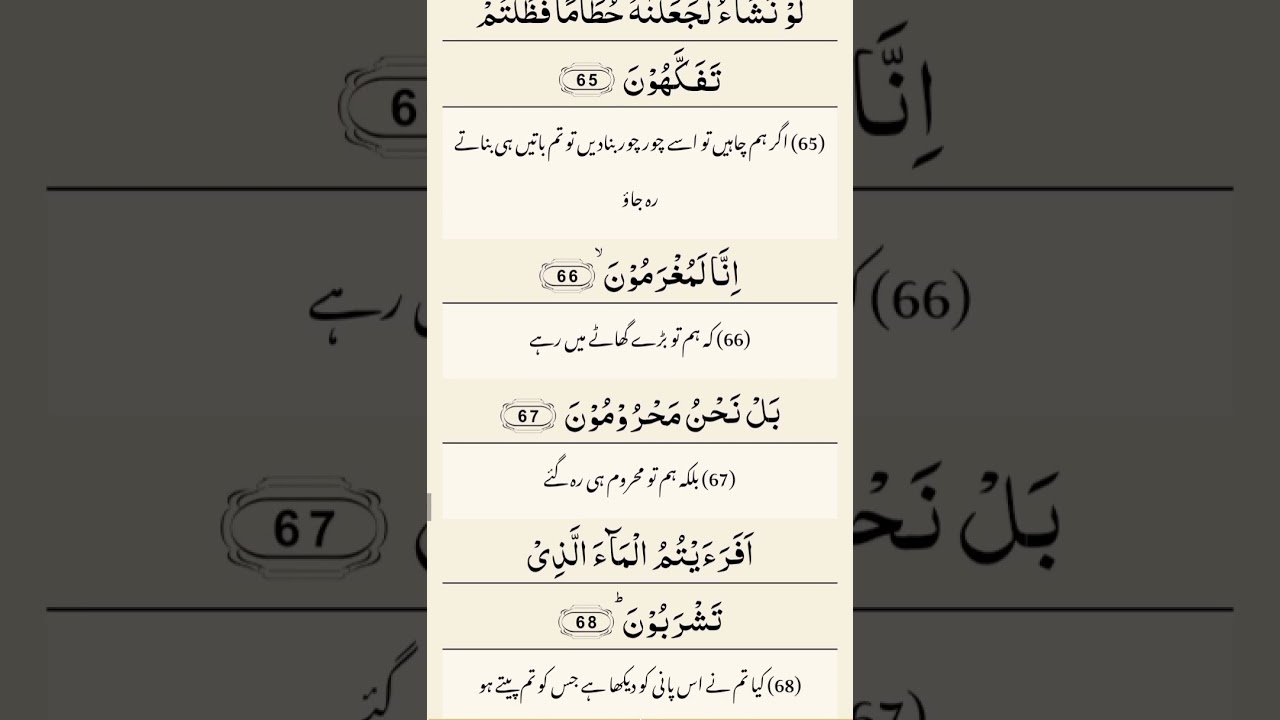 لَوْ نَشَآءُ لَجَعَلْنٰهُ حُطَامًا فَظَلْتُمْ
تَفَكَّهُوْنَ 65
(65) اگر ہم چاہیں تو اسے چور چور بنادیں تو تم باتیں ہی بناتے
رہ جاؤ
اِنَّا لَمُغْرَمُوْنَۙ 66
(66) کہ ہم تو بڑے گھاٹے میں رہے
بَلْ نَحْنُ مَحْرُوْمُوْنَ 67
(67) بلکہ ہم تو محروم ہی رہ گئے
اَفَرَءَيْتُمُ الْمَآءَ الَّذِيْ
تَشْرَبُوْنَؕ 68
(68) کیا تم نے اس پانی کو دیکھا ہے جس کو تم پیتے ہو